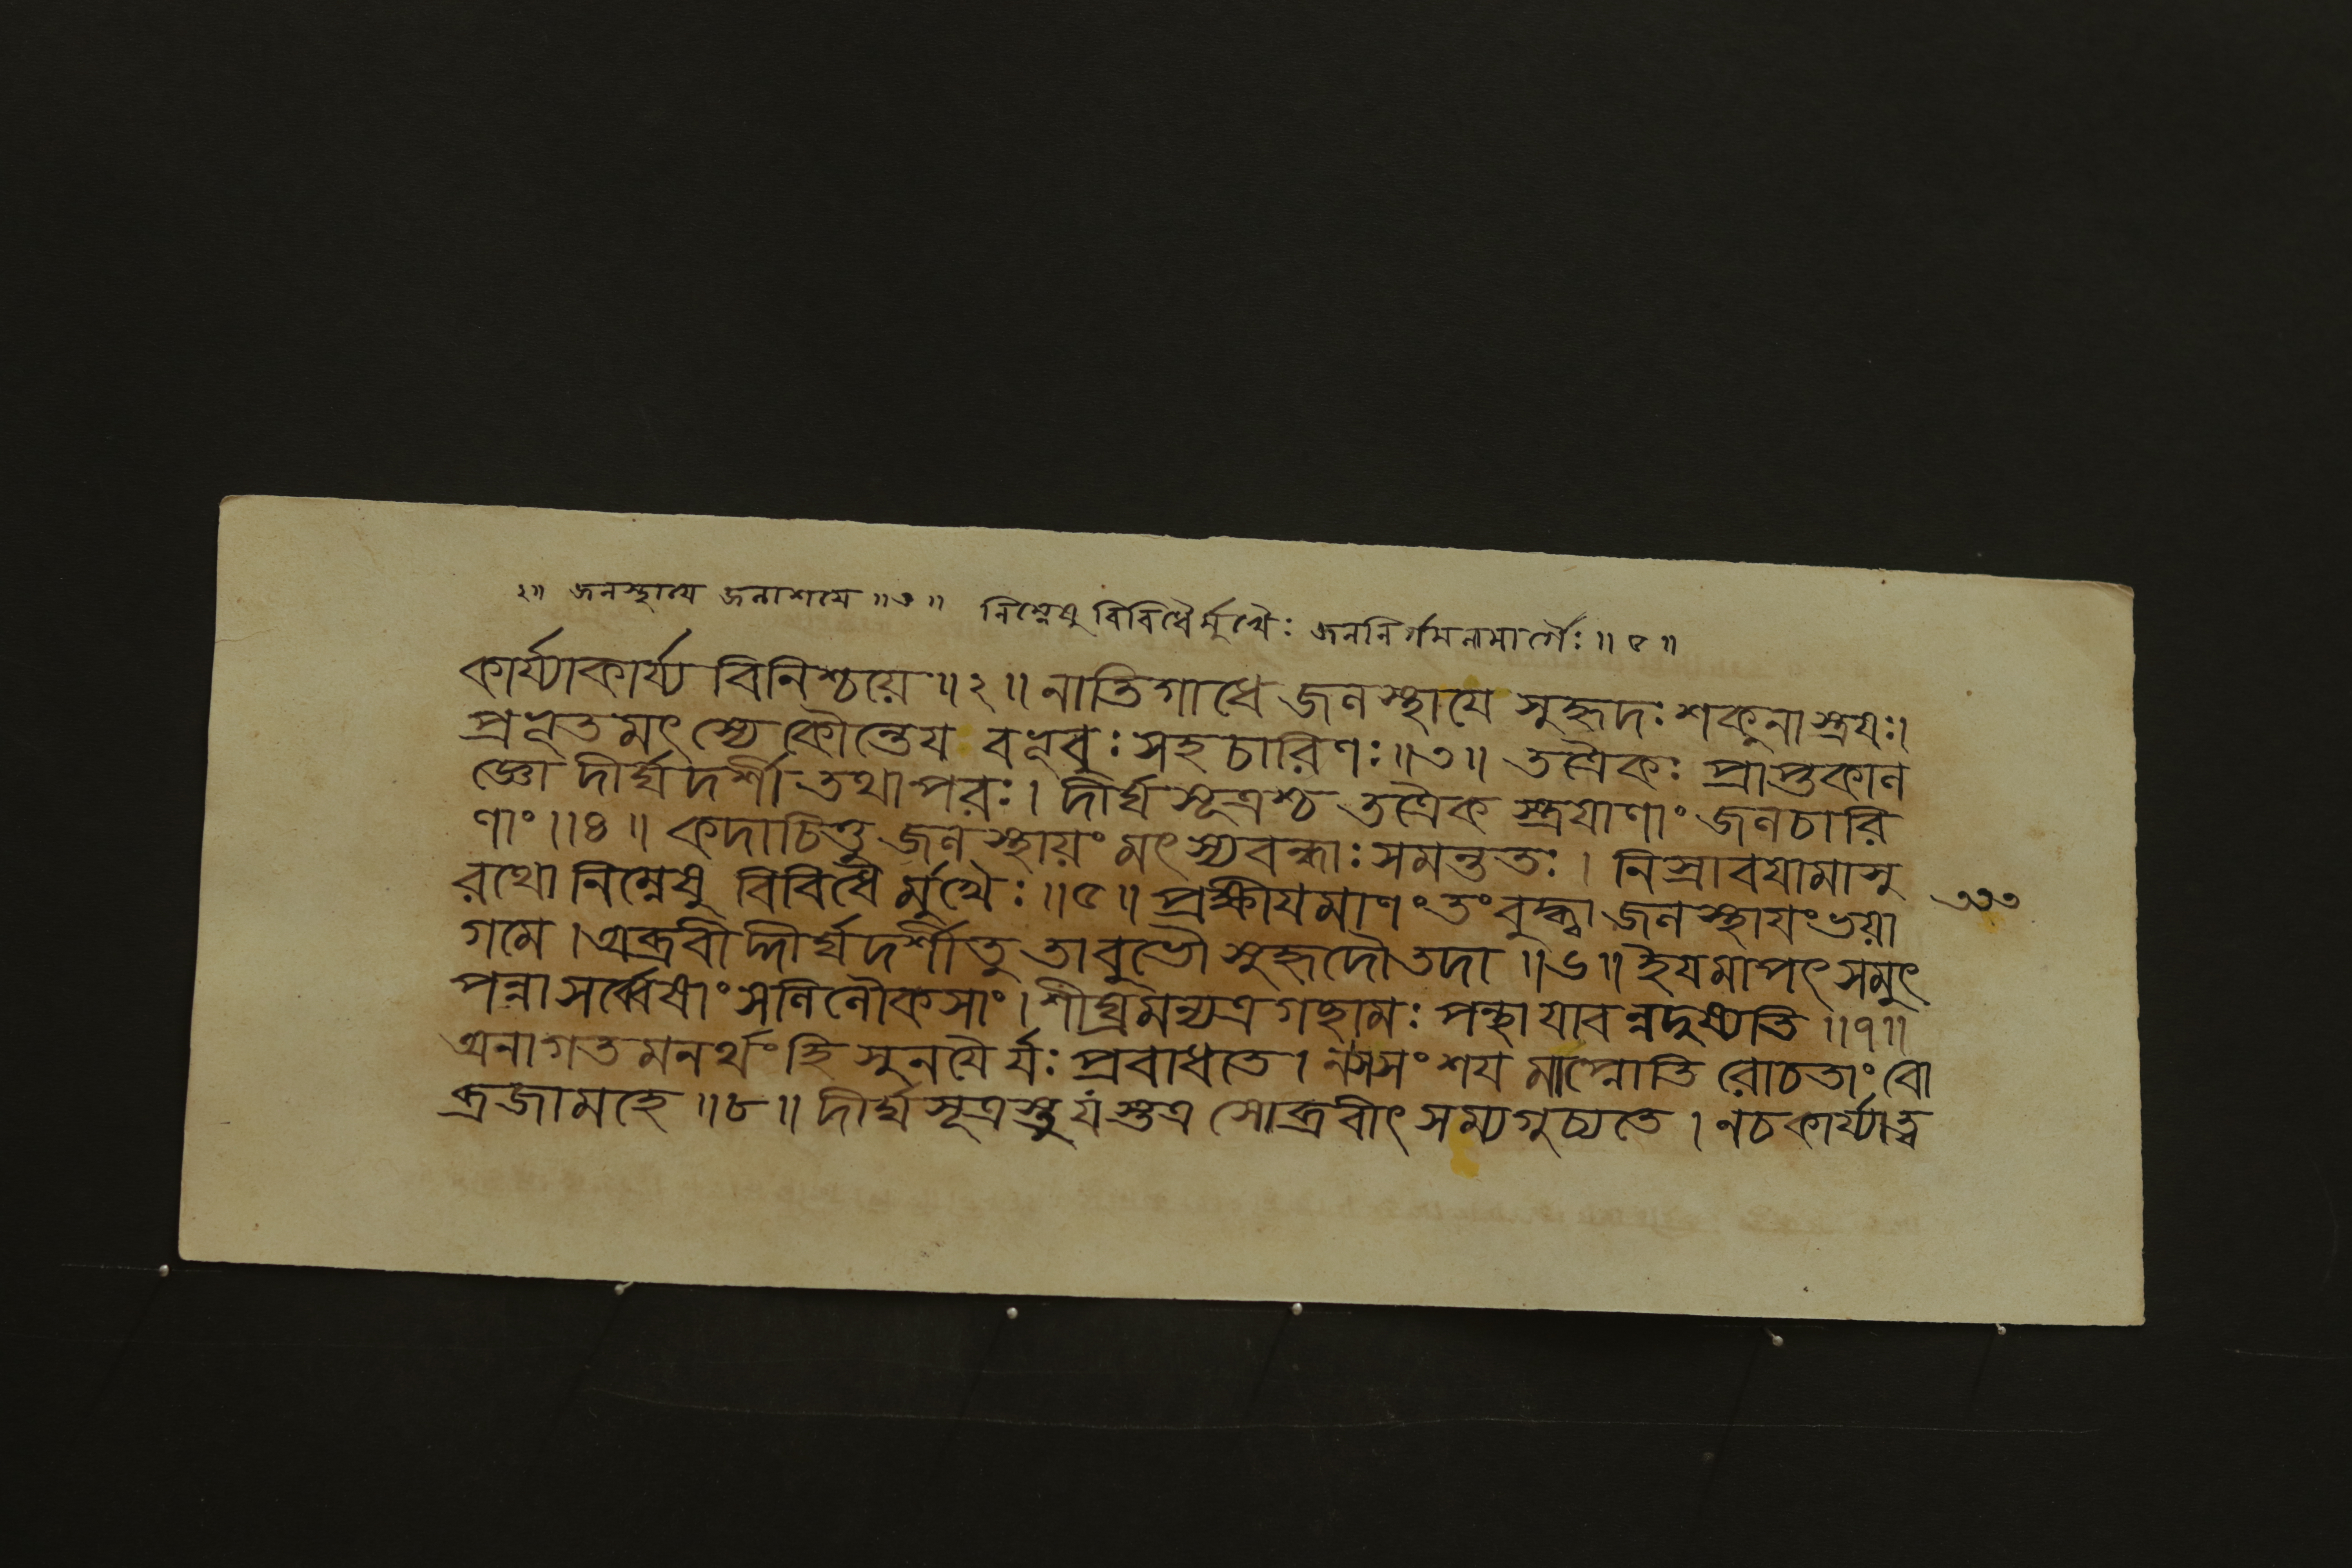 ২॥ জলস্থায়ে জলাশয়ে ॥৩॥ নিম্নেষু বিবিধৈর্মুখৈঃ জলনির্গমনমার্গৈঃ ॥৫॥
কার্য্যাকার্য্য বিনিশ্চয়ে ॥২॥ নাতিগাধে জলস্থাযে সুহৃদঃ শকুলাস্ত্রযঃ।
প্রভূতমৎস্যে কৌন্তেয বভূবুঃ সহচারিণঃ ॥৩॥ তত্রৈকঃ প্রাপ্তকাল
জ্ঞো দীর্ঘদর্শী তথাপরঃ। দীর্ঘসূত্রশ্চ তত্রৈক স্ত্রযাণাং জলচারি
ণাং ॥৪॥ কদাচিত্তু জলস্থায়ং মৎস্যবন্ধাঃ সমন্ততঃ । নিস্রাবযামাসু
রথো নিম্নেষু বিবিধৈর্মুখৈঃ ॥৫॥ প্রক্ষীযমাণং তং বুদ্ধ্বা জলস্থাযং ভয়া
৩৩৩
গমে । অব্রবীদ্দীর্ঘদর্শী তু তাবুভৌ সুহৃদৌ তদা ॥৬॥ ইযমাপৎ সমুৎ
পন্না সর্ব্বেষাং সলিলৌকসাং । শীঘ্রমন্যত্র গচ্ছামঃ পন্থা যাবন্নদুষ্যতি ॥৭॥
অনাগতমনর্থং হি সুনযৈর্যঃ প্রবাধতে । নসসংশয মাপ্নোতি রোচতাং বো
ব্রজামহে ॥৮॥ দীর্ঘসূত্রস্তু যস্তত্র সোব্রবীৎ সম্যগুচ্যতে । নচকার্য্যাত্ব